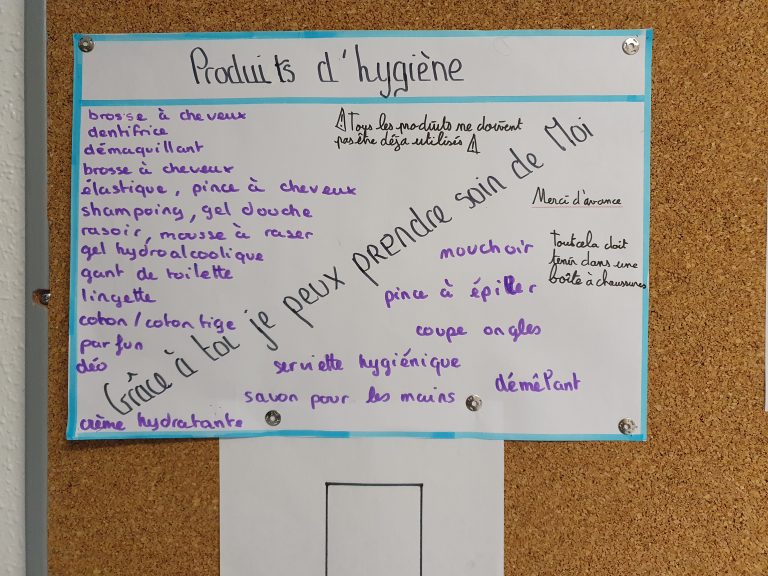 Produits d'hygiène
brosse à cheveux
dentifrice
démaquillant
brosse à cheveux
élastique, pince à cheveux
shampoing, gel douche
rasoir, mousse à raser
gel hydroalcoolique
gant de toilette
lingette
coton/coton tige
parfun
déo
crème hydratante
⚠Tous les produits ne doivent
pas être déja utilisés ⚠
Grâce à toi je peux prendre soin de Moi
Merci d'avance
mouchoir
pince à épiler
coupe ongles
serviette hygiénique
démêlant
savon pour les mains
tout cela doit
tenir dans une
boîte à chaussures